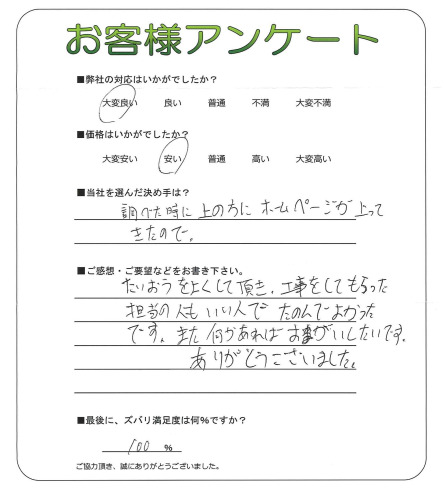 お客様アンケート
■弊社の対応はいかがでしたか?
大変良い 良い 普通 不満 大変不満
■価格はいかがでしたか?
大変安い 安い 普通 高い 大変高い
■当社を選んだ決め手は?
調べた時に上の方にホームページが上って
きたので。
■ご感想・ご要望などをお書き下さい。
たいおうをよくして頂き、工事をしてもらった
担当の人もいい人でたのんでよかった
です。また何かあればおねがいしたいです。
ありがとうございました。
■最後に、ズバリ満足度は何%ですか?
100 %
ご協力頂き、誠にありがとうございました。